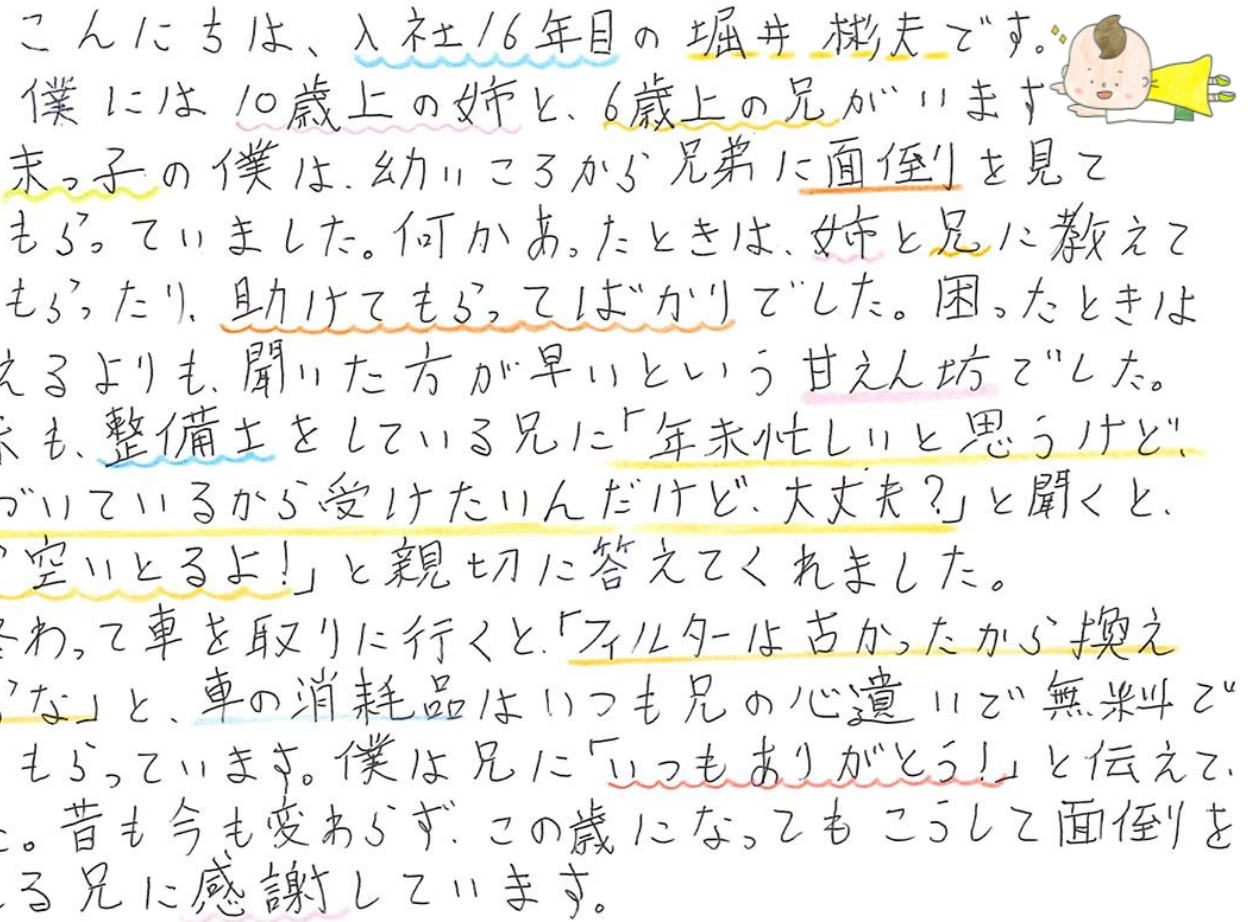 こんにちは、入社16年目の堀井 彬夫です。
僕には10歳上の姉と、6歳上の兄がいます
末っ子の僕は、幼いころから兄弟に面倒を見て
もらっていました。何かあったときは、姉と兄に教えて
もらったり、助けてもらってばかりでした。困ったときは
えるよりも、聞いた方が早いという甘えん坊でした。
も、整備士をしている兄に「年末忙しいと思うけど、
づいているから受けたいんだけど、大丈夫?」と聞くと、
空いとるよ!」と親切に答えてくれました。
終わって車を取りに行くと、「フィルターは古かったから換え
な」と、車の消耗品はいつも兄の心遣いで無料で
もらっています。僕は兄に「いつもありがとう!」と伝えて、
。昔も今も変わらず、この歳になってもこうして面倒を
る兄に感謝しています。